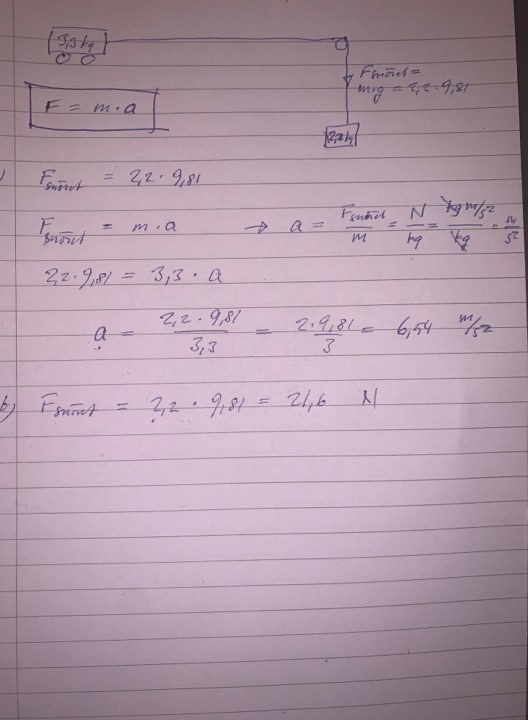 3,3 kg
F snöret =
m·g = 2,2·9,81
2,2 kg
F = m·a
F snöret = 2,2·9,81
F snöret = m·a → a = F snöret/m = N/kg = kg m/s²/kg = m/s²
2,2·9,81 = 3,3·a
a = 2,2·9,81/3,3 = 2·9,81/3 = 6,54 m/s²
b) F snöret = 2,2·9,81 = 21,6 N